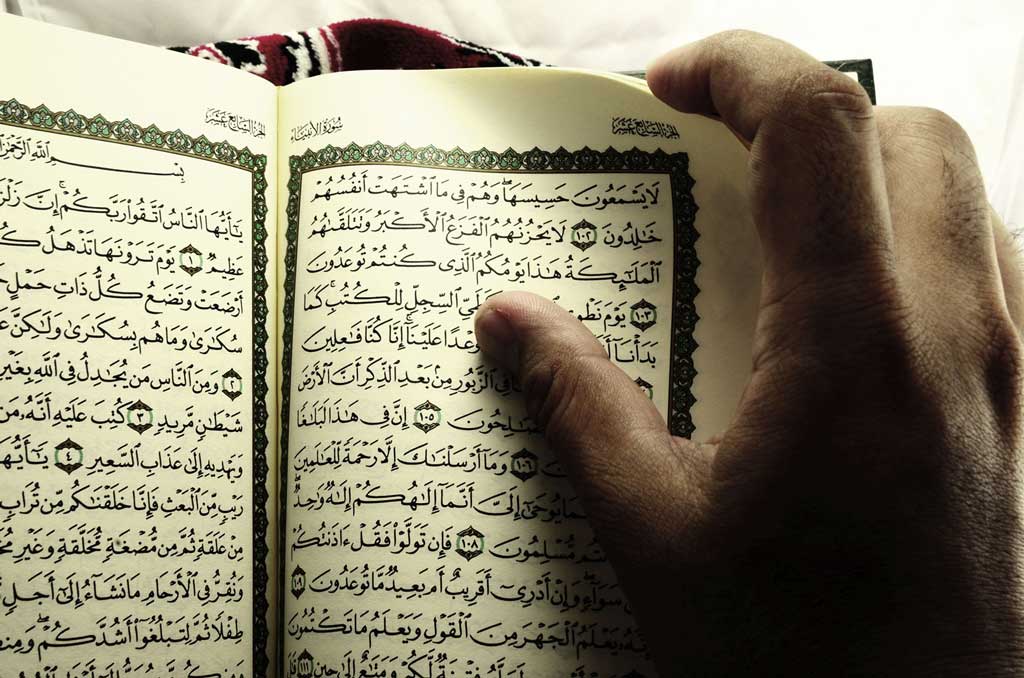 الجزء السابع عشر
سورة الأنبياء
لَا يَسْمَعُونَ حَسِيسَهَا ۖ وَهُمْ فِي مَا ٱشْتَهَتْ أَنفُسُهُمْ
خَٰلِدُونَ ١٠٢ لَا يَحْزُنُهُمُ ٱلْفَزَعُ ٱلْأَكْبَرُ وَتَتَلَقَّىٰهُمُ
ٱلْمَلَٰٓئِكَةُ هَٰذَا يَوْمُكُمُ ٱلَّذِي كُنتُمْ تُوعَدُونَ
١٠٣ يَوْمَ نَطْوِي ٱلسِّجِلِّ لِلْكُتُبِ ۚ كَمَا
بَدَأْنَآ وَعْدًا عَلَيْنَآ ۚ إِنَّا كُنَّا فَٰعِلِينَ
فِي ٱلزَّبُورِ مِنۢ بَعْدِ ٱلذِّكْرِ أَنَّ ٱلْأَرْضَ
ٱلصَّٰلِحُونَ ١٠٥ إِنَّ فِي هَٰذَا لَبَلَٰغًا
١٠٦ وَمَآ أَرْسَلْنَٰكَ إِلَّا رَحْمَةً لِّلْعَٰلَمِينَ
يُوحَىٰٓ إِلَيَّ أَنَّمَآ إِلَٰهُكُمْ إِلَٰهٌ وَٰحِدٌ ۖ
مُّسْلِمُونَ ١٠٨ فَإِن تَوَلَّوْا۟ فَقُلْ ءَاذَنتُكُمْ
سَوَآءٍ ۖ وَإِنْ أَدْرِيٓ أَقَرِيبٌ أَم بَعِيدٌ مَّا تُوعَدُونَ ١٠٩
يَعْلَمُ ٱلْجَهْرَ مِنَ ٱلْقَوْلِ وَيَعْلَمُ مَا تَكْتُمُونَ
فِتْنَةٌ لَّكُمْ وَمَتَٰعٌ إِلَىٰ حِينٍ ١١١
الجزء السابع عشر
بِسْمِ ٱللَّهِ ٱلرَّحْمَٰنِ
يَٰٓأَيُّهَا ٱلنَّاسُ ٱتَّقُوا۟ رَبَّكُمْ ۚ إِنَّ
عَظِيمٌ ١ يَوْمَ تَرَوْنَهَا تَذْهَلُ
أَرْضَعَتْ وَتَضَعُ كُلُّ ذَاتِ حَمْلٍ
سُكَٰرَىٰ وَمَا هُم بِسُكَٰرَىٰ وَلَٰكِنَّ
٢ وَمِنَ ٱلنَّاسِ مَن يُجَٰدِلُ فِي ٱللَّهِ بِغَيْرِ
شَيْطَٰنٍ مَّرِيدٍ ٣ كُتِبَ عَلَيْهِ أَنَّهُۥ مَن
وَيَهْدِيهِ إِلَىٰ عَذَابِ ٱلسَّعِيرِ ٤ يَٰٓأَيُّهَا
رَيْبٍ مِّنَ ٱلْبَعْثِ فَإِنَّا خَلَقْنَٰكُم مِّن تُرَابٍ
مِنْ عَلَقَةٍ ثُمَّ مِن مُّضْغَةٍ مُّخَلَّقَةٍ وَغَيْرِ
وَنُقِرُّ فِي ٱلْأَرْحَامِ مَا نَشَآءُ إِلَىٰٓ أَجَلٍ
طِفْلًا ثُمَّ لِتَبْلُغُوٓا۟ أَشُدَّكُمْ ۖ